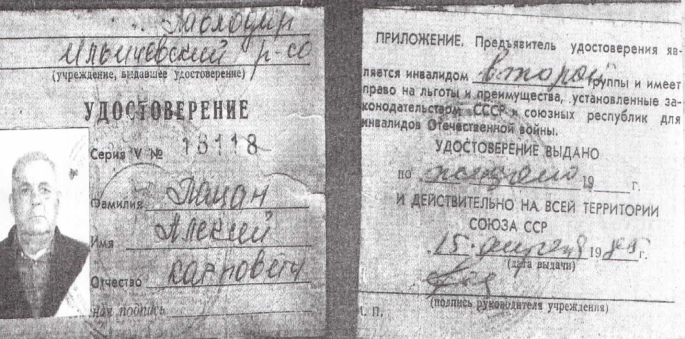 Ильичевский р-со
(учреждение, выдавшее удостоверение)
УДОСТОВЕРЕНИЕ
Серия V № 13118
Фамилия Пацан
Имя Алексей
Отчество Карпович
ная подпись
ПРИЛОЖЕНИЕ. Предъявитель удостоверения яв-
ляется инвалидом второй группы и имеет
право на льготы и преимущества, установленные за-
конодательством СССР и союзных республик для
инвалидов Отечественной войны.
УДОСТОВЕРЕНИЕ ВЫДАНО
по 19 г.
И ДЕЙСТВИТЕЛЬНО НА ВСЕЙ ТЕРРИТОРИИ
СОЮЗА ССР
15 19 г.
(дата выдачи)
(подпись руководителя учреждения)
М. П.